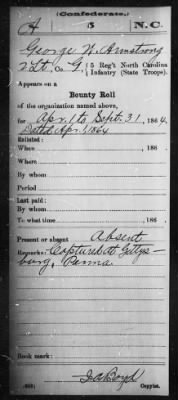 (Confederate.)
A 5 N.C.
George W. Armstrong
2 Lt., Co. G, 5 Reg't North Carolina
Infantry (State Troops).
Appears on a
Bounty Roll
of the organization named above,
for Apr. 1 to Sept. 31, 1864.
Dated Apr. 1, 1864
Enlisted:
When , 186 .
Where
By whom
Period
Last paid:
By whom
To what time , 186 .
Present or absent Absent
Remarks: Captured at Gettys-
burg, Penna.
Book mark:
Copyist.